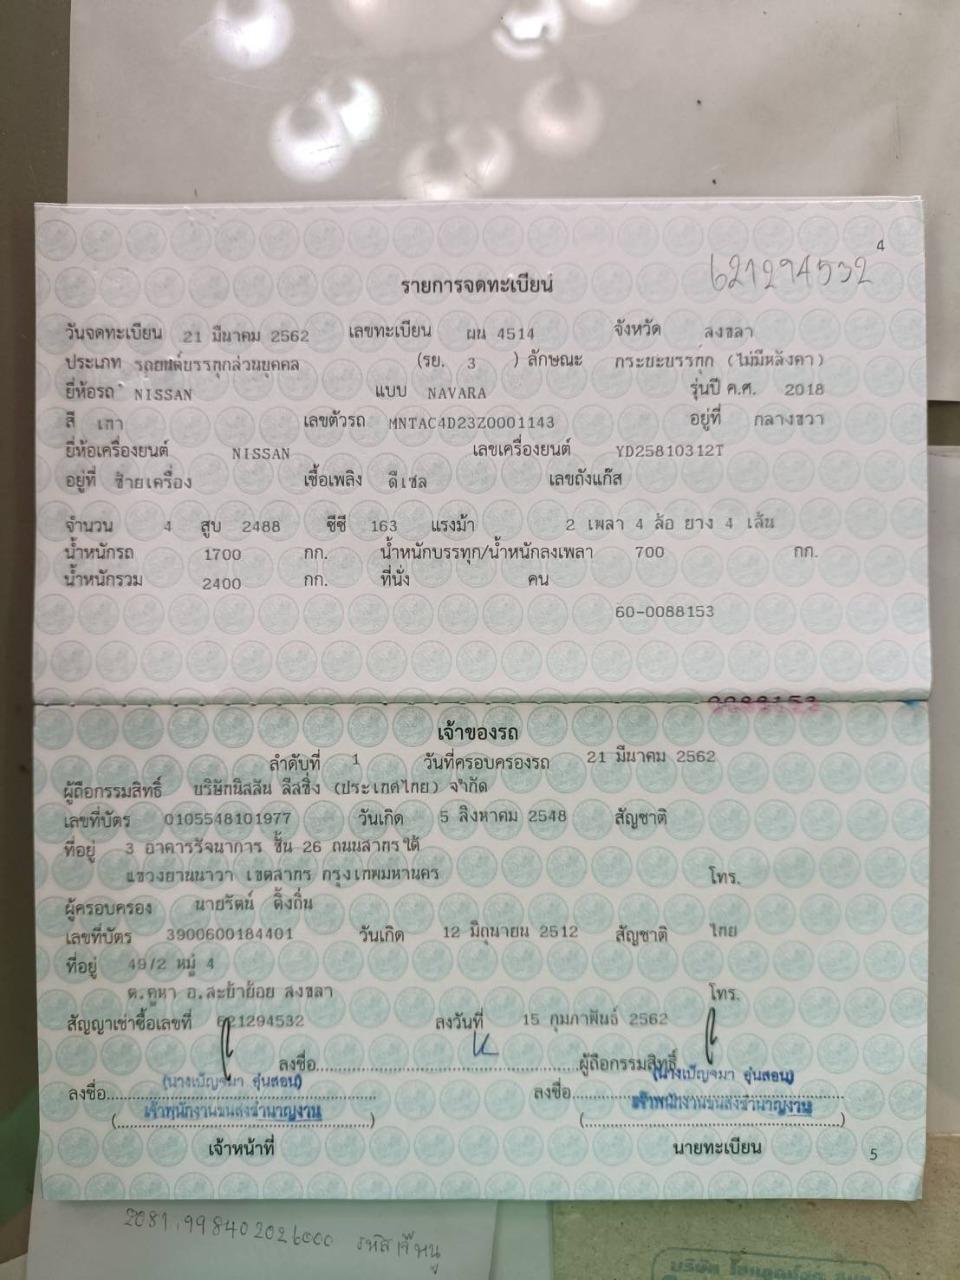 4
621294532
รายการจดทะเบียน
วันจดทะเบียน 21 มีนาคม 2562 เลขทะเบียน ผน 4514 จังหวัด สงขลา
ประเภท รถยนต์บรรทุกส่วนบุคคล (รย. 3 ) ลักษณะ กระบะบรรทุก (ไม่มีหลังคา)
ยี่ห้อรถ NISSAN แบบ NAVARA รุ่นปี ค.ศ. 2018
สี เทา เลขตัวรถ MNTAC4D23Z0001143 อยู่ที่ กลางขวา
ยี่ห้อเครื่องยนต์ NISSAN เลขเครื่องยนต์ YD25810312T
อยู่ที่ ซ้ายเครื่อง เชื้อเพลิง ดีเซล เลขถังแก๊ส
จำนวน 4 สูบ 2488 ซีซี 163 แรงม้า 2 เพลา 4 ล้อ ยาง 4 เส้น
น้ำหนักรถ 1700 กก. น้ำหนักบรรทุก/น้ำหนักลงเพลา 700 กก.
น้ำหนักรวม 2400 กก. ที่นั่ง คน
60-0088153
0088153
เจ้าของรถ
ลำดับที่ 1 วันที่ครอบครองรถ 21 มีนาคม 2562
ผู้ถือกรรมสิทธิ์ บริษัทนิสสัน ลีสซิ่ง (ประเทศไทย) จำกัด
เลขที่บัตร 0105548101977 วันเกิด 5 สิงหาคม 2548 สัญชาติ
ที่อยู่ 3 อาคารรัจนาการ ชั้น 26 ถนนสาทรใต้
แขวงยานนาวา เขตสาทร กรุงเทพมหานคร โทร.
ผู้ครอบครอง นายรัตน์ ติ้งถิ่น
เลขที่บัตร 3900600184401 วันเกิด 12 มิถุนายน 2512 สัญชาติ ไทย
ที่อยู่ 49/2 หมู่ 4
ต.คูหา อ.สะบ้าย้อย สงขลา โทร.
สัญญาเช่าซื้อเลขที่ 621294532 ลงวันที่ 15 กุมภาพันธ์ 2562
ลงชื่อ ผู้ถือกรรมสิทธิ์
(นางเบ็ญจมา อุ่นสอน) (นางเบ็ญจมา อุ่นสอน)
ลงชื่อ ลงชื่อ
เจ้าพนักงานขนส่งชำนาญงาน เจ้าพนักงานขนส่งชำนาญงาน
เจ้าหน้าที่ นายทะเบียน
5
2081.998402026000 รหัสเจ๊หนู